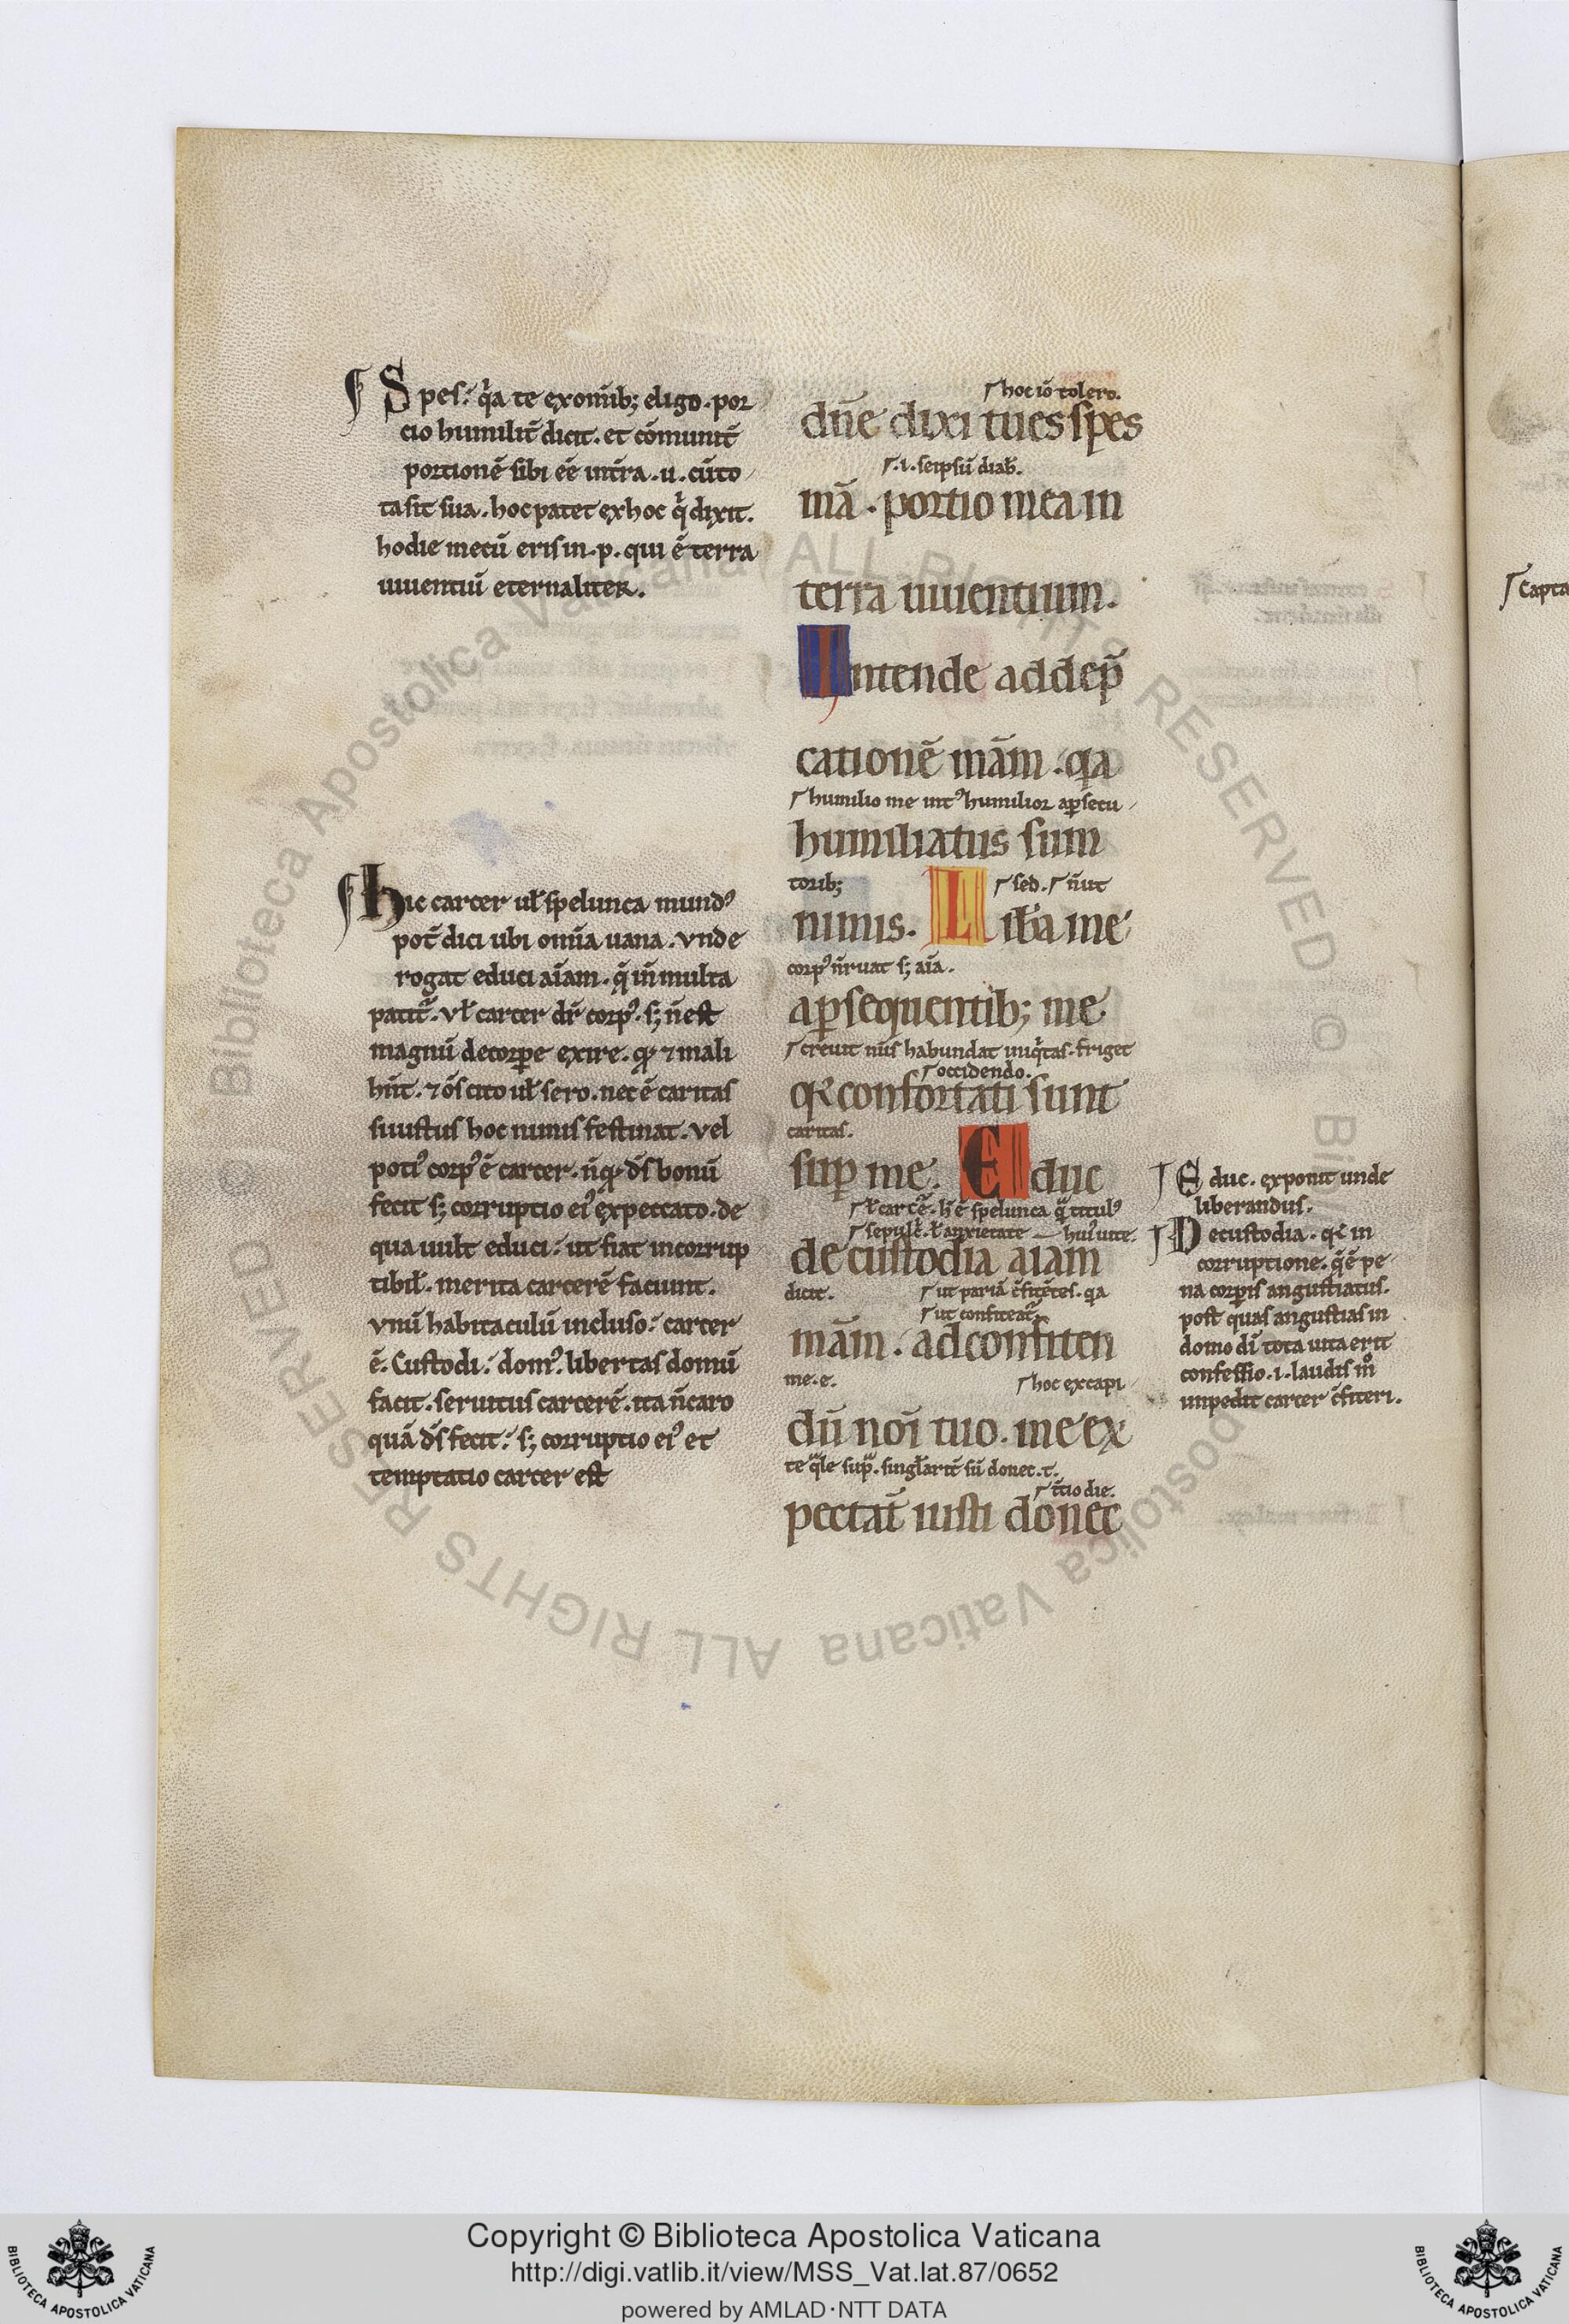 Spes. q̇a te ex om̄ib; eligo. por
cio humilit̄ dicit. et cōmunit̄
portionē sibi eē int̄ra .u. cū to
ta sit sua. hoc patet ex hoc q̇ dixit.
hodie mecū eris in .p. qui ē terra
uiuentiū eternaliter.
hic carcer ul̄ spelunca mundꝰ
pot̄ dici ubi om̄ia uana. vnde
rogat educi aīam. q̄ in multa
patit᷑. vl̄ carcer dr̄ corpꝰ. s; n̄ est
magnū de corꝑe exire. q̄ ⁊ mali
hn̄t. ⁊ oē cito ul̄ sero. nec ē caritas
si iustus hoc nimis festinat. vel
potiꝰ corpꝰ ē carcer. n̄ q̄ d̄s bonū
fecit s; corruptio eiꝰ ex peccato. de
qua uult educi. ut fiat incorrup
tibil̄. merita carcerē faciunt.
vnū habitaculū incluso. carcer
ē. Custodi. domꝰ. libertas domū
facit. seruitus carcerē. ita n̄ caro
quā d̄s fecit. s; corruptio eiꝰ et
temptatio carcer est
hoc iō tolero.
dn̄e dixi tu es spes
.i. seipsū diab̄.
mā. portio mea in
terra uiuentium.
Intende ad dep̄
cationē mām. q̇a
humilio me int̄ꝰ humilior a ꝑsecu
humiliatus sum
torib; sed. n̄ ut
nimis. Lib̄a me
corpꝰ n̄ ruat s; aīa.
a ꝑsequentib; me
creuit nīs habundat iniq̇tas. friget
occidendo.
qꝛ confortati sunt
caritas.
suꝑ me. Educ
l̄ carcē. h̄ ē spelunca q̄ titulꝰ
sepulc̄. l̄ anxietate huiꝰ uite.
de custodia aīam
dicit. ut pariā ꝯfitētes. q̇a
ut confiteat᷑
mām. ad confiten
me. e. hoc ex capi
dū noī tuo. me ex
te q̄le sup̄. singl̄arit̄ sū donec .t.
t̄tio die.
pectāt iusti donec
Educ. exponit unde
liberandus.
De custodia. qꝛ in
corruptione. q̄ ē pe
na corꝑis angustiatus.
post quas angustias in
domo dī tota uita erit
confessio .i. laudis m̊
impedit carcer ꝯfiteri.
Capta
© Biblioteca Apostolica Vaticana ALL RIGHTS RESERVED © Biblioteca Apostolica Vaticana ALL RIGHTS RESERVED
Copyright © Biblioteca Apostolica Vaticana
http://digi.vatlib.it/view/MSS_Vat.lat.87/0652
powered by AMLAD·NTT DATA
BIBLIOTECA APOSTOLICA VATICANA
BIBLIOTECA APOSTOLICA VATICANA